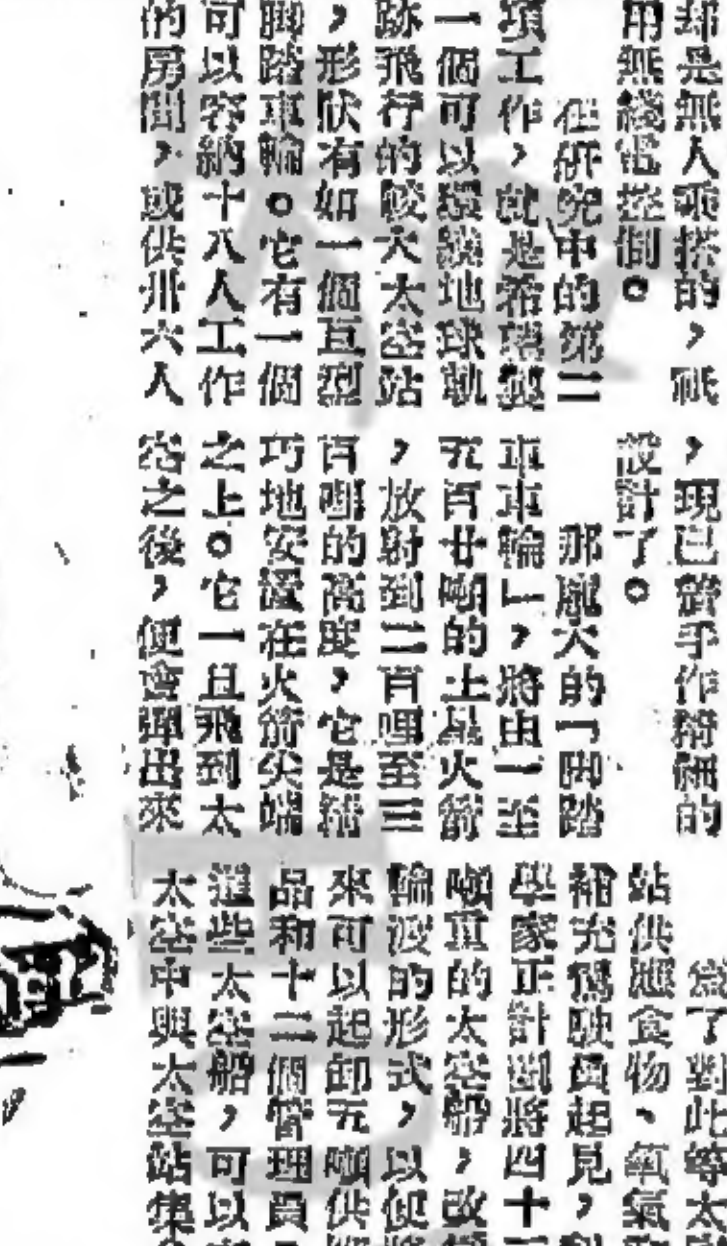 却是無人乘搭的，祇
用無綫電控制。
在研究中的第二
項工作，就是希望製
一個可以環繞地球軌
跡飛行的較大太空站
，形狀有如一個巨型
脚踏車輪。它有一個
可以容納十八人工作
的房間，或供卅六人
，現已着手作詳細的
設計了。
那龐大的「脚踏
車車輪」，將由一至
五百廿噸的土星火箭
，放射到二百哩至三
百哩的高度，它是精
巧地安置在火箭尖端
之上。它一旦飛到太
空之後，便會彈出來
為了對此等太
站供應食物、氧氣
補充駕駛員起見，
學家正計劃將四十
噸重的太空船，改
輪渡的形式，以便
來可以起卸五噸供
品和十二個管理員
這些太空船，可以
太空中與太空站集